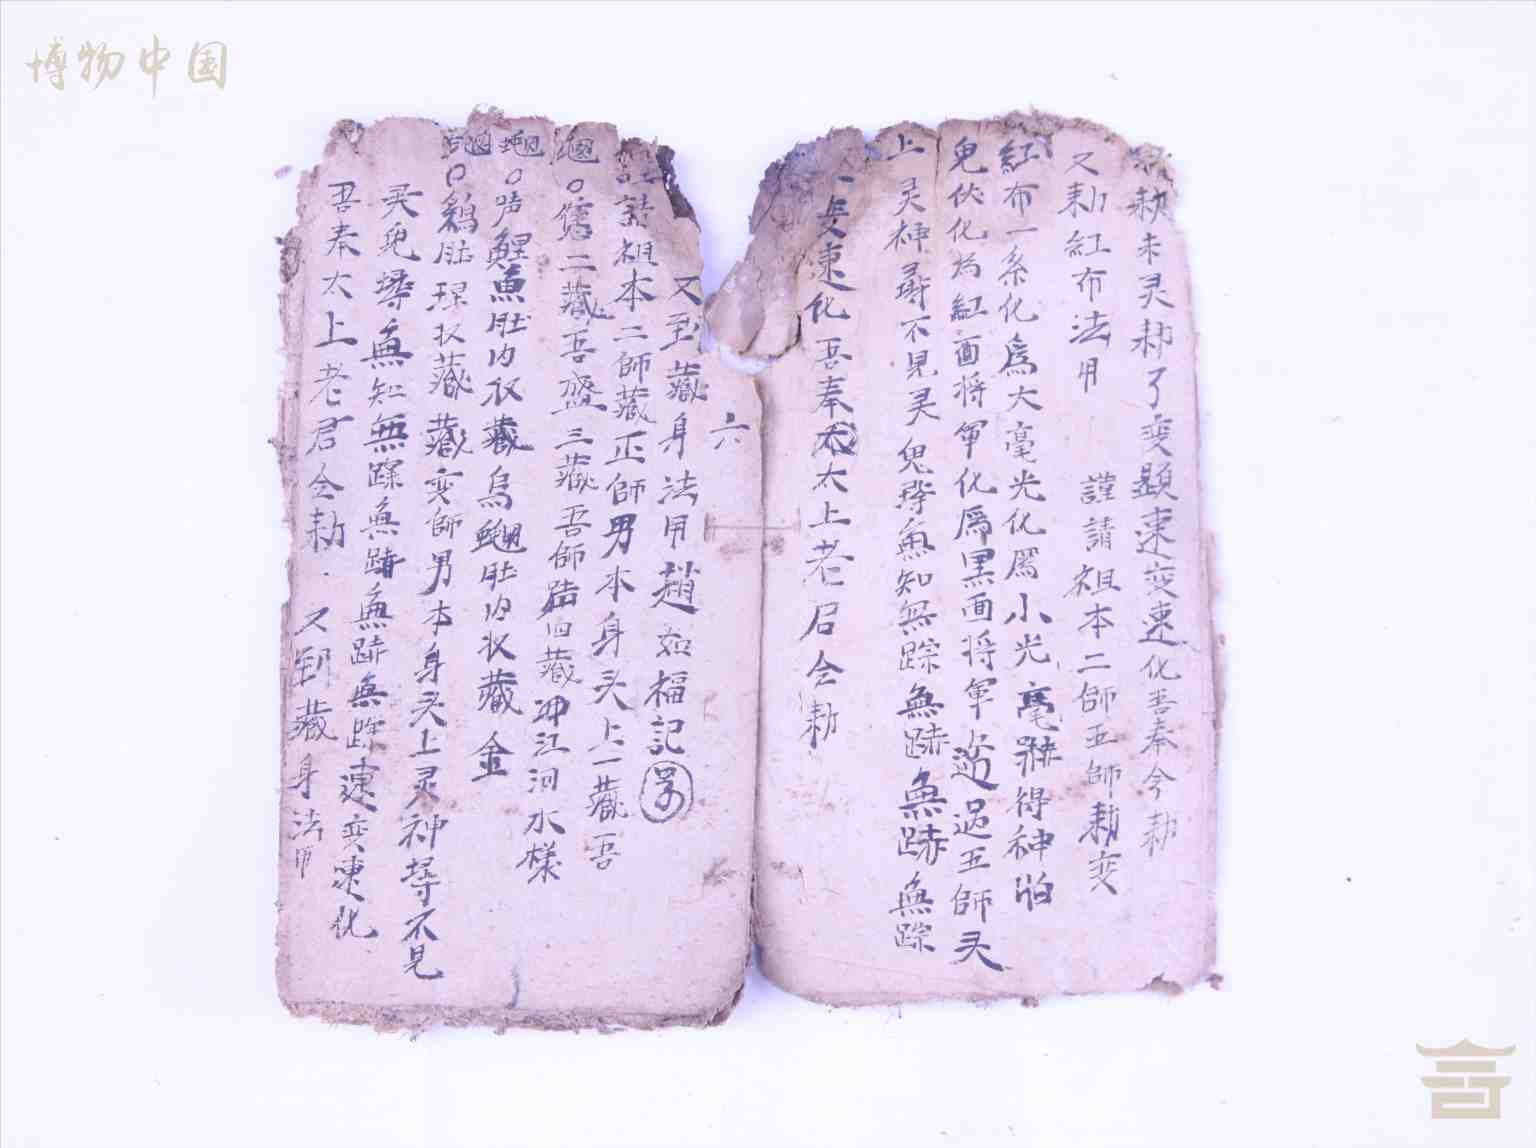 博物中国
敕未灵敕了变题速变速化吾奉令敕
又敕紅布法用 謹請祖本二師五師敕变
紅布一条化為大毫光化為小光毫 得神怕
鬼伏化为紅面将軍化為黑面将軍 过五師头
上灵神尋不見灵鬼尋無知無踪無跡無跡無踪
变速化吾奉太上老君令敕
六
又到藏身法用趙如福記号
請祖本二師藏正師男本身头上一藏吾
二藏吾 三藏吾師 四藏 江河水様
鯉魚肚内 藏烏 肚内 藏金
鷄肚 藏藏变師男本身头上灵神尋不見
灵鬼尋無知無踪無跡無跡無踪速变速化
吾奉太上老君令敕 又到藏身法用